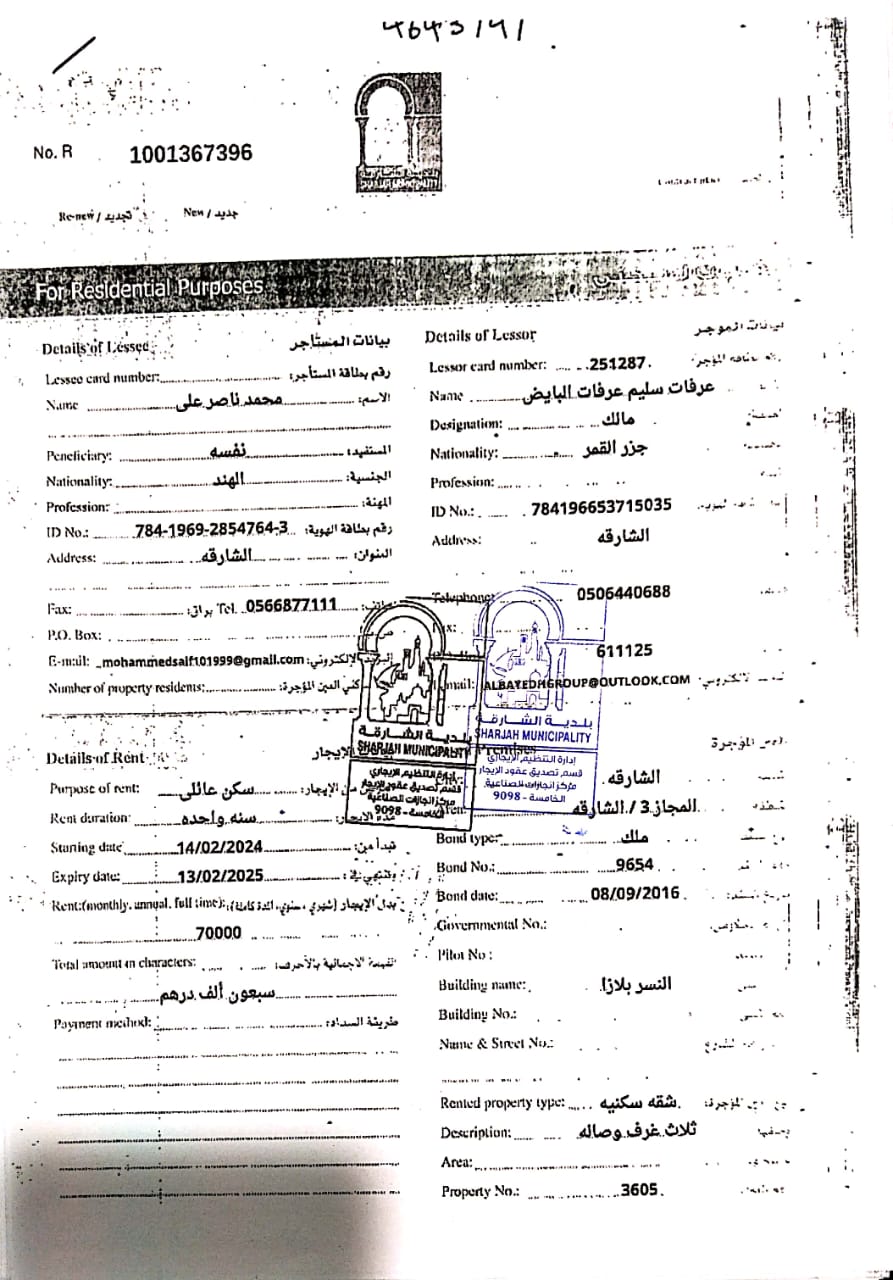 4643/41
No. R 1001367396
Re-new / تجديد New / جديد
For Residential Purposes
Details of Lessee بيانات المستأجر
Lessee card number: رقم بطاقة المستأجر:
Name محمد ناصر على الاسم:
Beneficiary: نفسه المستفيد:
Nationality: الهند الجنسية:
Profession: المهنة:
ID No.: 784-1969-2854764-3 رقم بطاقة الهوية:
Address: الشارقه العنوان:
Fax: براق: Tel. 0566877111 هاتف:
P.O. Box:
E-mail: mohammedsalf101999@gmail.com البريد الإلكتروني:
Number of property residents:
Details of Lessor بيانات الموجر
Lessor card number: 251287
Name عرفات سليم عرفات البايض
Designation: مالك
Nationality: جزر القمر
Profession:
ID No.: 784196653715035
Address: الشارقه
Telephone: 0506440688
Fax:
611125
Email: ALBAYEDHGROUP@OUTLOOK.COM
بلدية الشارقة
SHARJAH MUNICIPALITY
إدارة التنظيم الإيجاري
قسم تصديق عقود الإيجار
مركز انجازات الصناعية
الخامسة - 9098
بلدية الشارقة
SHARJAH MUNICIPALITY
إدارة التنظيم الإيجاري
قسم تصديق عقود الإيجار
مركز انجازات الصناعية
الخامسة - 9098
Details of Rent
Purpose of rent: سكن عائلى
Rent duration: سنه واحده
Starting date 14/02/2024 تبدأ من:
Expiry date: 13/02/2025 وتنتهي في:
Rent:(monthly, annual, full time): بدل الإيجار (شهري ، سنوي ، لمدة كاملة):
70000
Total amount in characters: القيمة الاجمالية بالأحرف:
سبعون ألف درهم
Payment method: طريقة السداد:
Premises
الشارقه
المجاز 3 / الشارقه
Bond type: ملك
Bond No.: 9654
Bond date: 08/09/2016
Governmental No.:
Pilot No :
Building name: النسر بلازا
Building No.:
Name & Street No.:
Rented property type: شقه سكنيه
Description: ثلاث غرف وصاله
Area:
Property No.: 3605